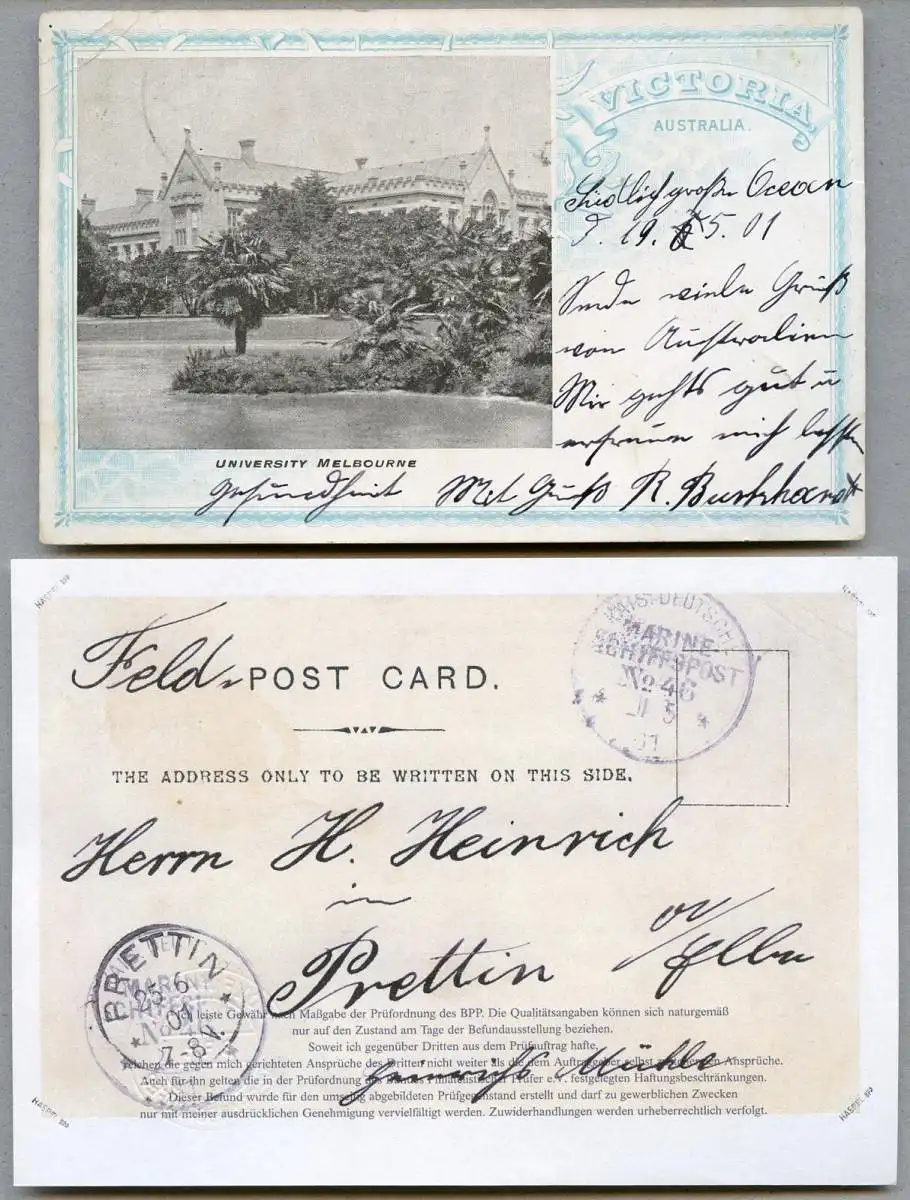 VICTORIA
AUSTRALIA.
Südlich großen Ocean
19. 5. 01
Sende viele Grüß
von Australien
Mir gehts gut u
erfreue mich besten
UNIVERSITY MELBOURNE
Gesundheit Mit Gruß R. Burkhardt
HASPEL BPP
HASPEL BPP
Feld-POST CARD.
KAIS. DEUTSCHE
MARINE-
SCHIFFSPOST
No 46
5
01
THE ADDRESS ONLY TO BE WRITTEN ON THIS SIDE.
Herrn H. Heinrich
in
Prettin a/Elbe
PRETTIN
25 6
01
7-8V.
MARINE
SCHIFFSPOST
No 46
Ich leiste Gewähr nach Maßgabe der Prüfordnung des BPP. Die Qualitätsangaben können sich naturgemäß
nur auf den Zustand am Tage der Befundausstellung beziehen.
Soweit ich gegenüber Dritten aus dem Prüfauftrag hafte,
reichen die gegen mich gerichteten Ansprüche des Dritten nicht weiter als die dem Auftraggeber selbst zustehenden Ansprüche.
Auch für ihn gelten die in der Prüfordnung des Bundes Philatelistischer Prüfer e.V. festgelegten Haftungsbeschränkungen.
Mühle
Dieser Befund wurde für den umseitig abgebildeten Prüfgegenstand erstellt und darf zu gewerblichen Zwecken
nur mit meiner ausdrücklichen Genehmigung vervielfältigt werden. Zuwiderhandlungen werden urheberrechtlich verfolgt.
HASPEL BPP
HASPEL BPP